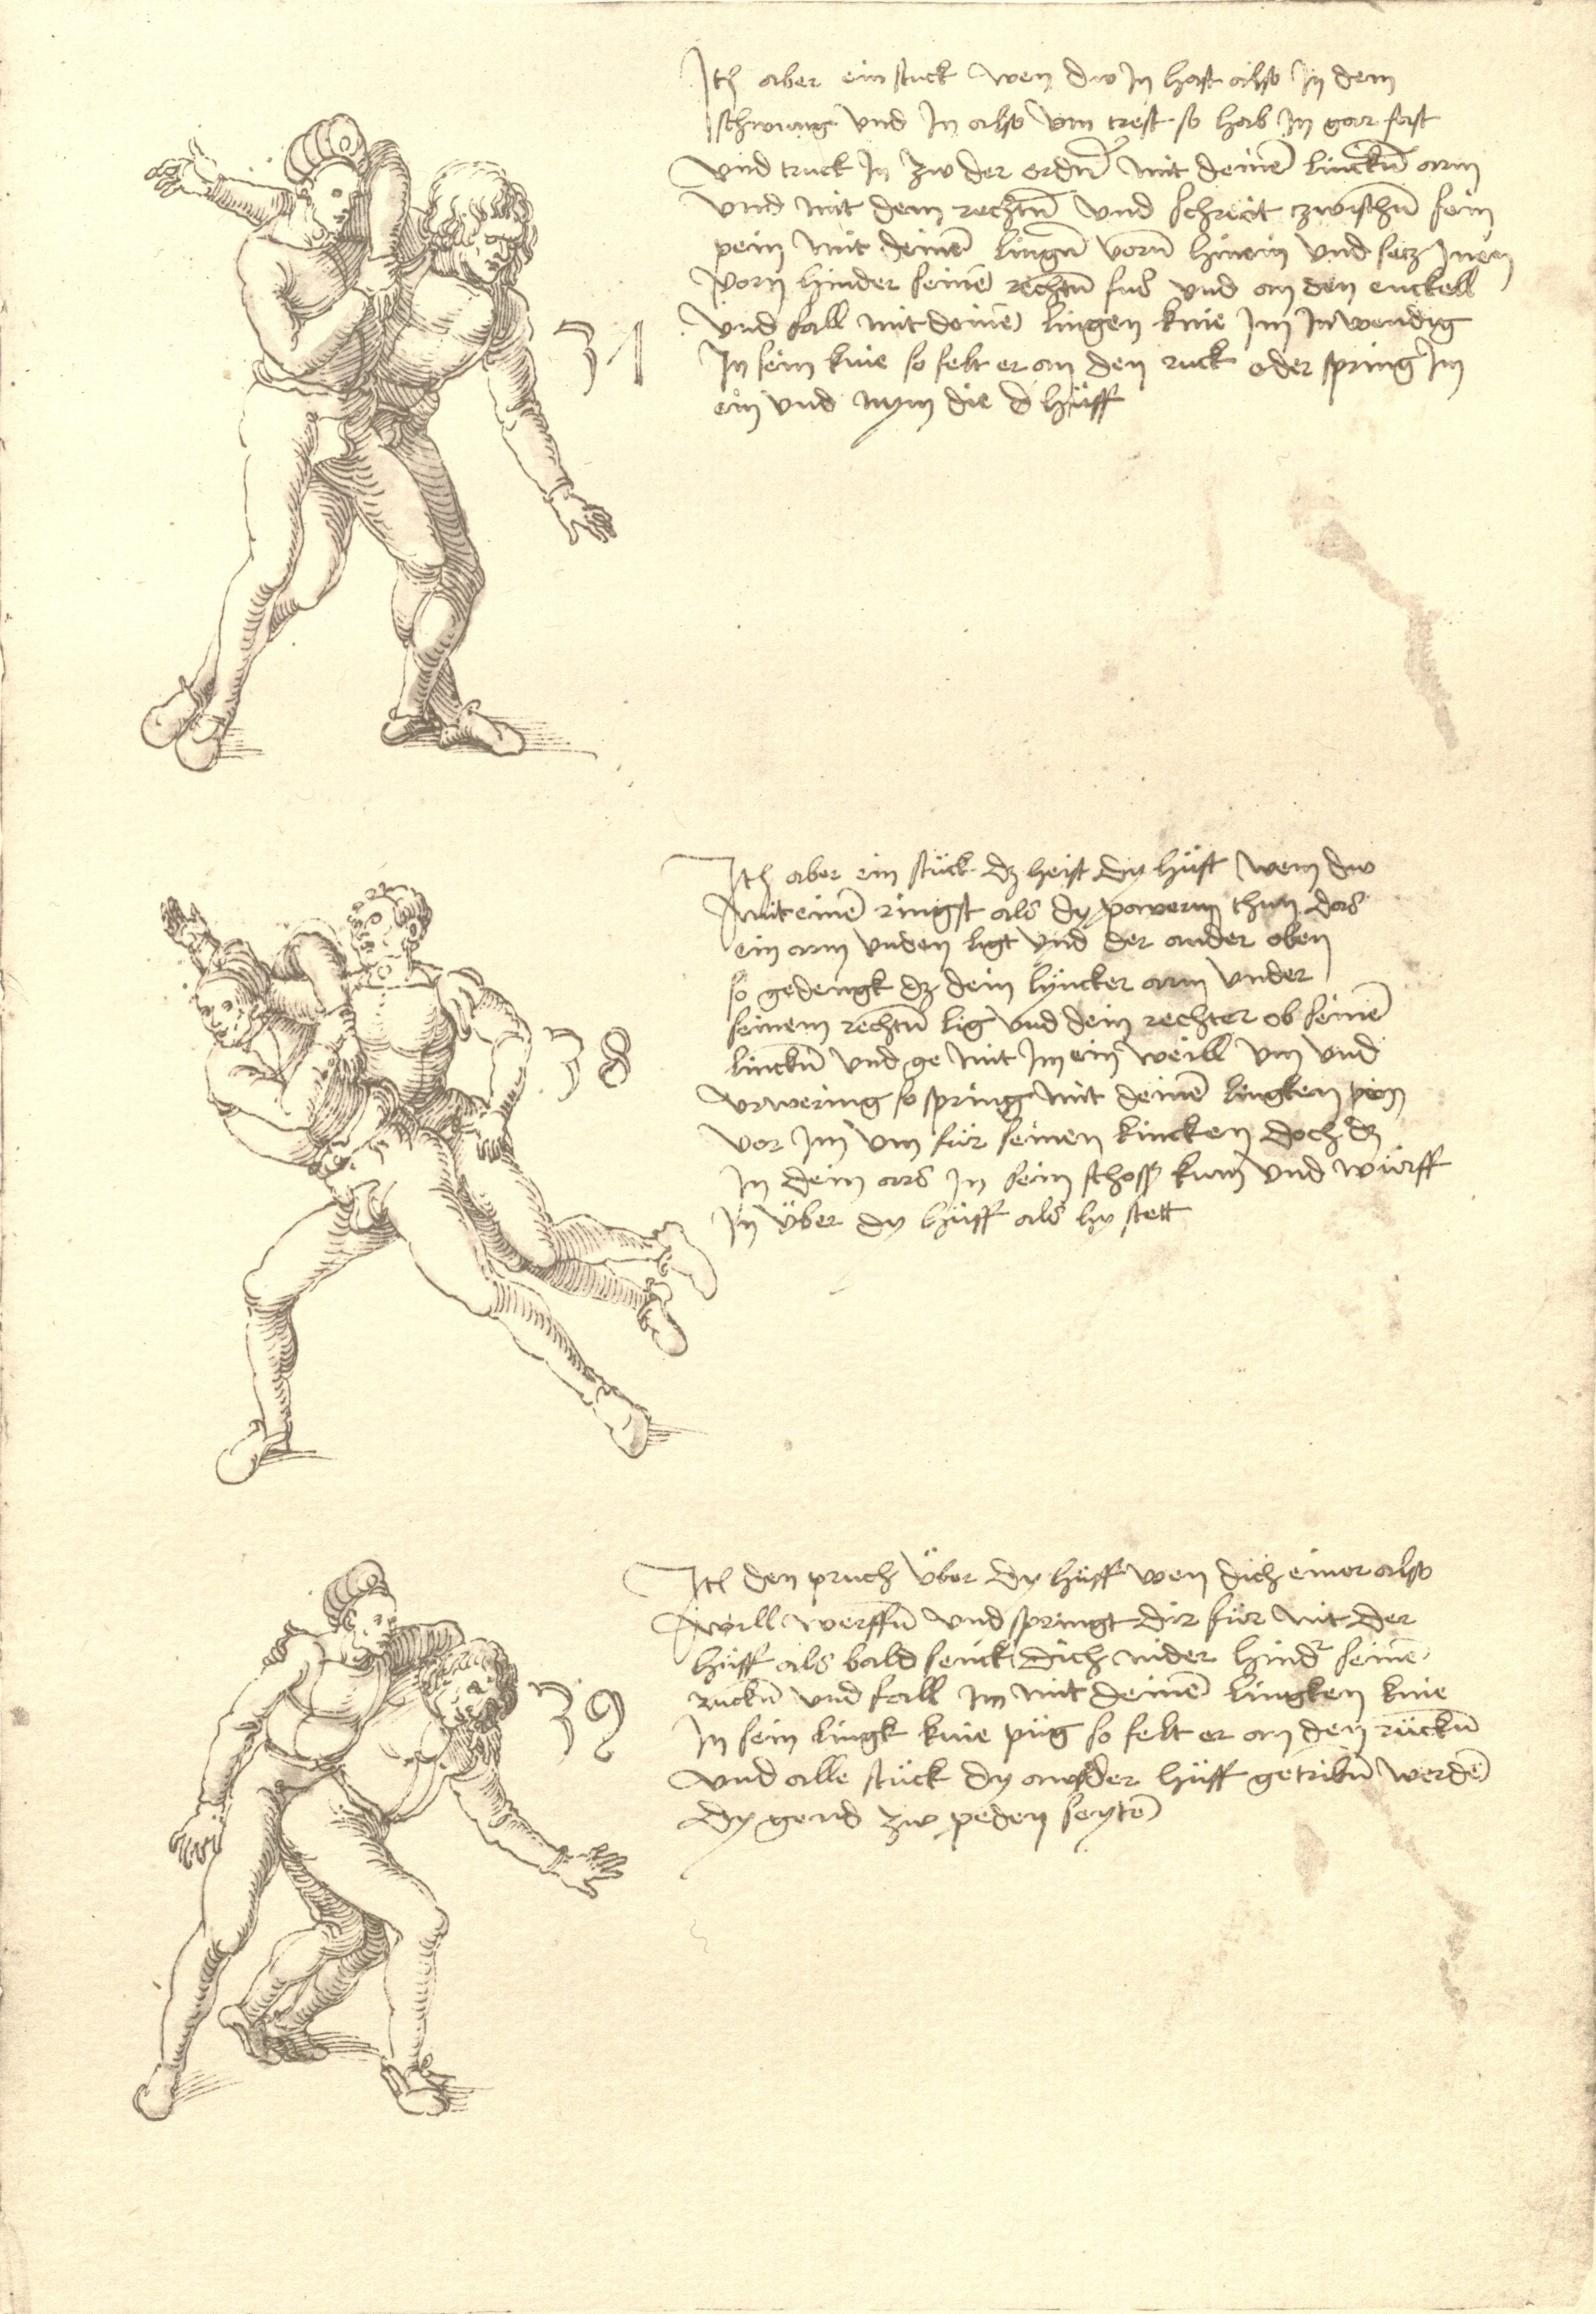 Itē aber ein stuck wen dw In hast also In dem
schwang vnd In also vm trest so hab In gar fast
vnd truck In zw der erdn̄ mit deinē linckn̄ arm
vnd mit dem rechtn̄ vnd schreit zwischn̄ sein
pein mit deinē lingn̄ vorn̄ hinein vnd secz In en
vorn hinder seinē rechtn̄ fus vnd an den enckell
vnd fall mit deinē lingen knie Im Inwendig
In sein knie so felt er an den ruck oder spring Im
ein vnd nym die d hüff
37
Itē aber ein stück dz heist dy hüft wem dw
mit einē ringst als dy pavern thun das
ein arm vnden ligt vnd der ander oben
so gedengk dz dein lyncker arm vnder
seinem rechtn̄ lig vnd dein rechter ob seinē
linckn̄ vnd ge mit Im ein weill vm vnd
spring mit deinē lingken pein
vor Im vm für seinen lincken doch dz
In dein ars In sein schoss kum vnd würff
In über dy hüff als hy stett
38
Itē den pruch über dy hüff wen dich einer also
will werffn̄ vnd springt dir für mit der
hüff als bald senck dich nider hindr seinē
ruckn̄ vnd fall Im mit deinē lingken knie
In sein lingk knie püg so felt er an den rückn̄
vnd alle stück dy aws der hüff getribn̄ werdē
dy gend zw peden seytē
39